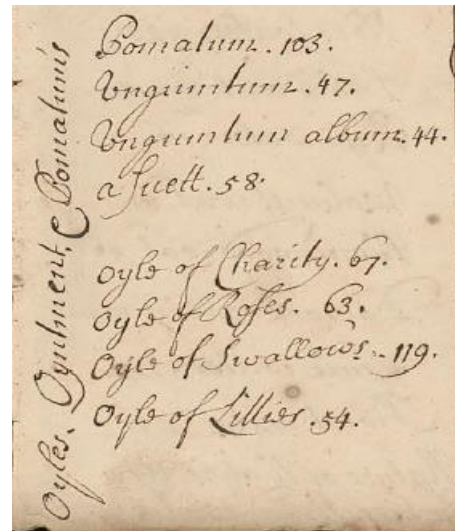 Oyles, Oyntment, & Pomatums
Pomatum. 103.
Unguintum. 47.
Unguintum album. 44.
a Suett. 58.
Oyle of Charity. 67.
Oyle of Roses. 63.
Oyle of Swallows. 119.
Oyle of Lillies. 54.